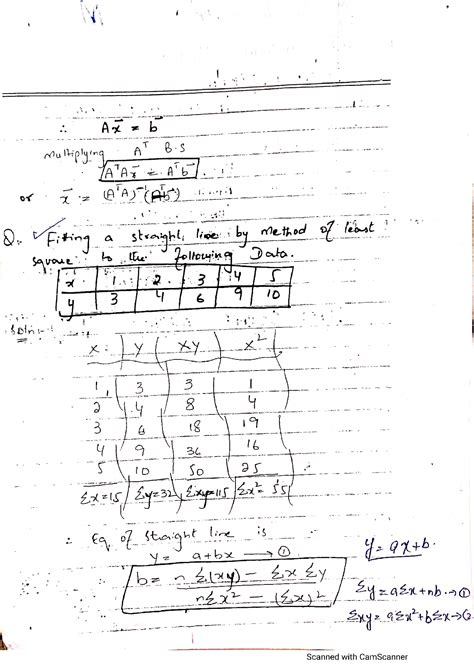 ∴ Ax⃗ = b⃗
Multiplying Aᵀ B.S
AᵀAx⃗ = Aᵀb⃗
or x⃗ = (AᵀA)⁻¹(Aᵀb⃗)
Q. Fitting a straight line by method of least
square to the following Data.
x 1 2 3 4 5
y 3 4 6 9 10
Soln:-
x y xy x²
1 3 3 1
2 4 8 4
3 6 18 19
4 9 36 16
5 10 50 25
Σx=15 Σy=32 Σxy=115 Σx²=55
∴ Eq. of straight line is
y = a+bx → ①
y = ax+b.
b = nΣ(xy) − Σx Σy
nΣx² − (Σx)²
Σy = aΣx+nb → ①
Σxy = aΣx²+bΣx →
Scanned with CamScanner